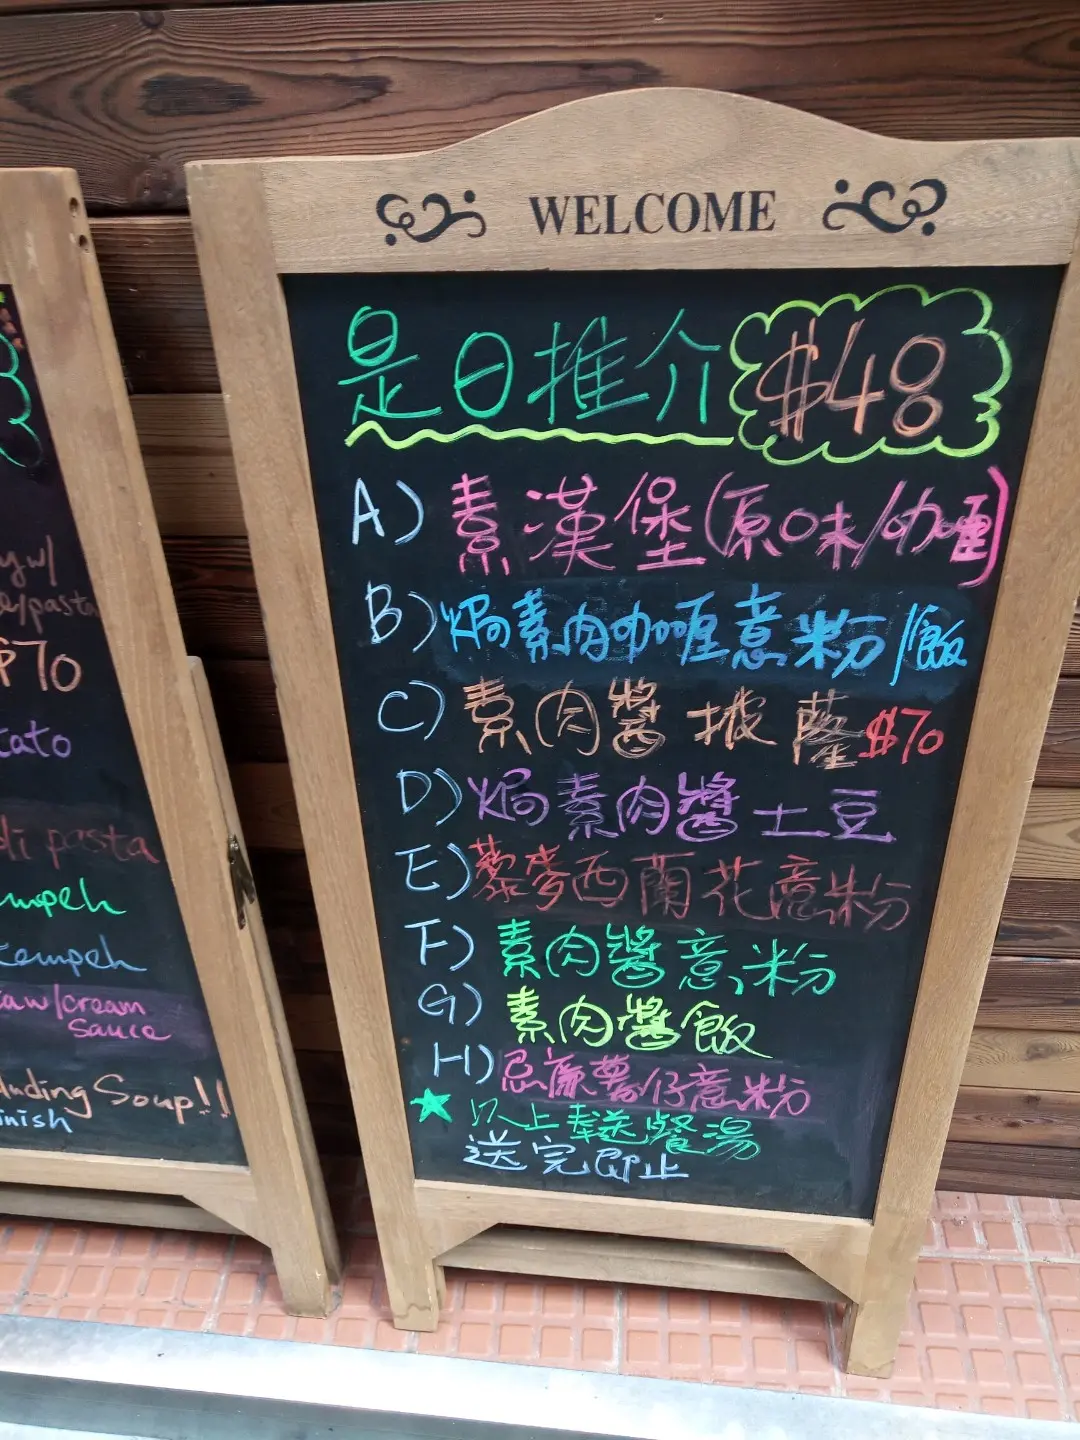 WELCOME
是日推介 $48
A) 素漢堡(原味/咖喱)
B) 焗素肉咖喱意粉/飯
C) 素肉醬披薩 $70
D) 焗素肉醬土豆
E) 藜麥西蘭花意粉
F) 素肉醬意粉
G) 素肉醬飯
H) 忌廉薯仔意粉
以上奉送餐湯
送完即止
y w/
e/pasta
$70
tato
li pasta
empeh
tempeh
aw/cream
sauce
luding Soup!!
inish